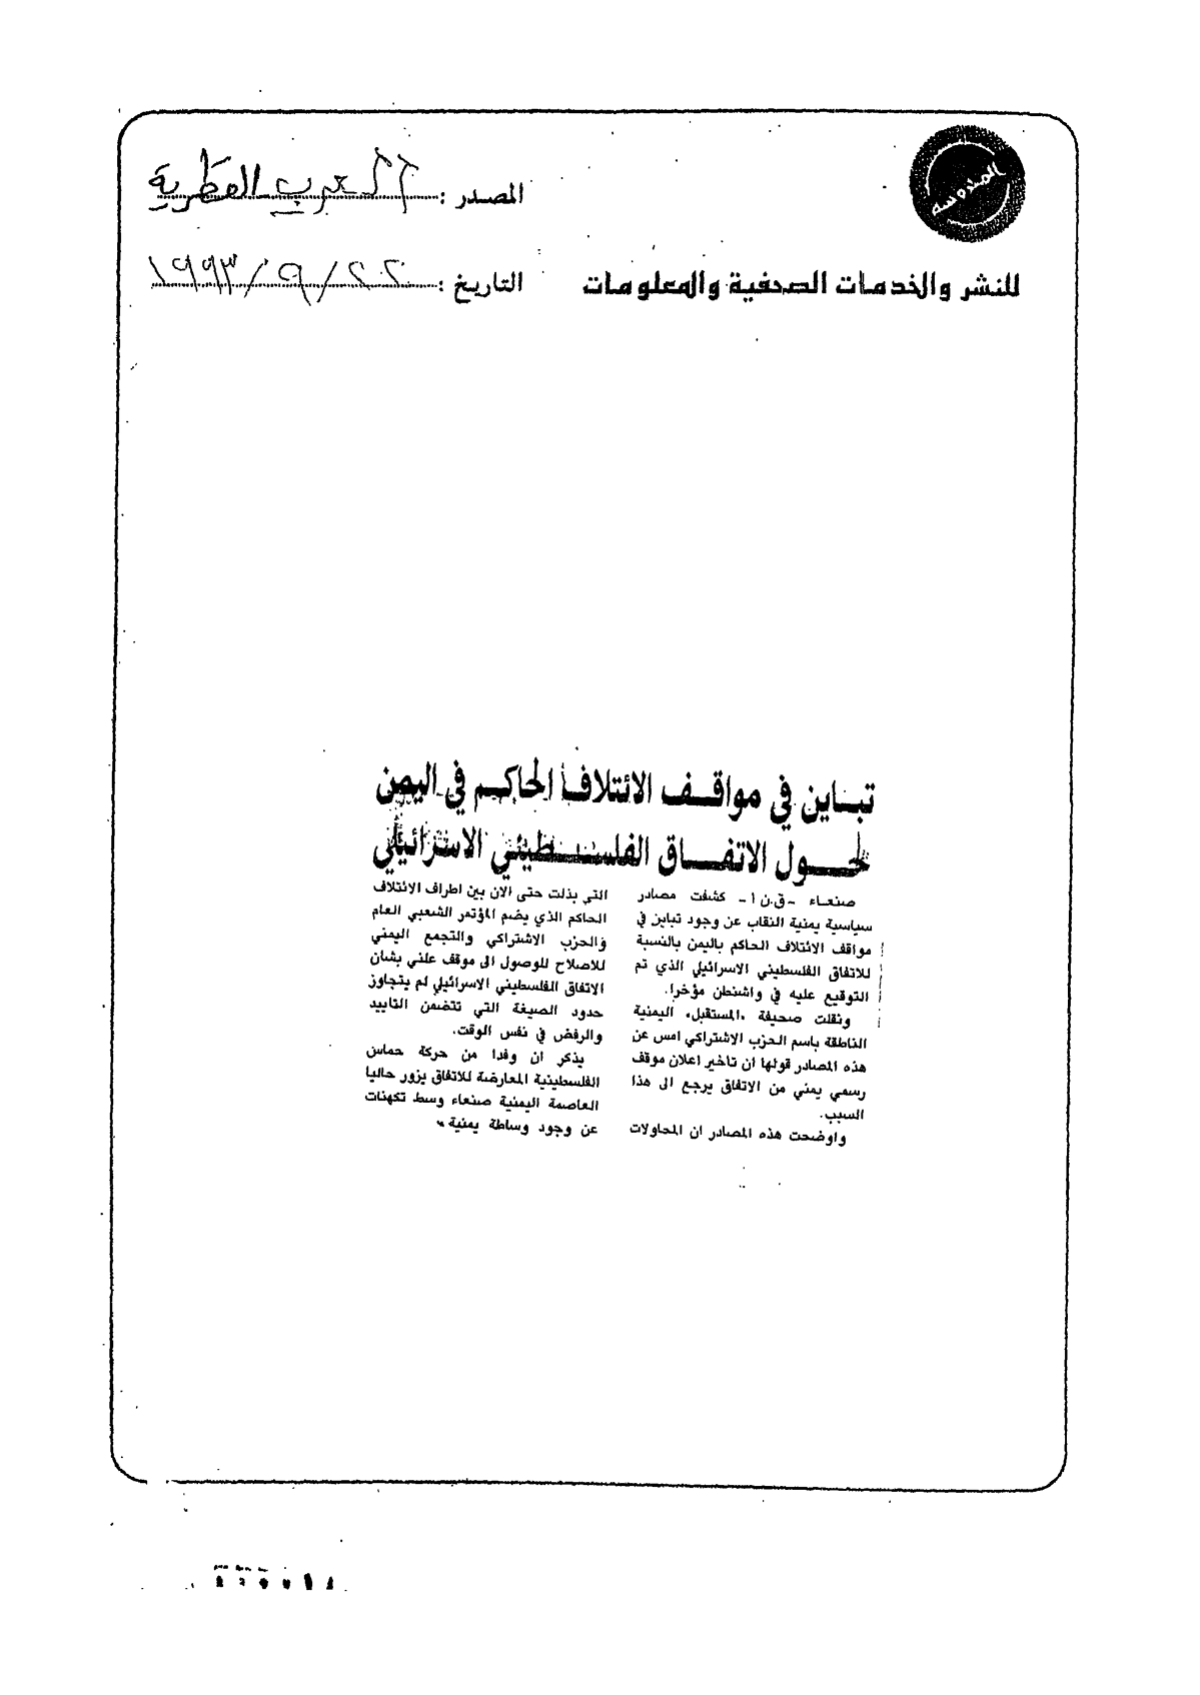 المصدر : العرب القطرية
للنشر والخدمات الصحفية والمعلومات
التاريخ : ٢٢ / ٩ / ١٩٩٣
تباين في مواقف الائتلاف الحاكم في اليمن
حول الاتفاق الفلسطيني الاسرائيلي
صنعاء - ق.ن ا - كشفت مصادر
سياسية يمنية النقاب عن وجود تباين في
مواقف الائتلاف الحاكم باليمن بالنسبة
للاتفاق الفلسطيني الاسرائيلي الذي تم
التوقيع عليه في واشنطن مؤخرا.
ونقلت صحيفة «المستقبل» اليمنية
الناطقة باسم الحزب الاشتراكي امس عن
هذه المصادر قولها ان تاخير اعلان موقف
رسمي يمني من الاتفاق يرجع الى هذا
السبب.
واوضحت هذه المصادر ان المحاولات
التي بذلت حتى الان بين اطراف الائتلاف
الحاكم الذي يضم المؤتمر الشعبي العام
والحزب الاشتراكي والتجمع اليمني
للاصلاح للوصول الى موقف علني بشان
الاتفاق الفلسطيني الاسرائيلي لم يتجاوز
حدود الصيغة التي تتضمن التاييد
والرفض في نفس الوقت.
يذكر ان وفدا من حركة حماس
الفلسطينية المعارضة للاتفاق يزور حاليا
العاصمة اليمنية صنعاء وسط تكهنات
عن وجود وساطة يمنية